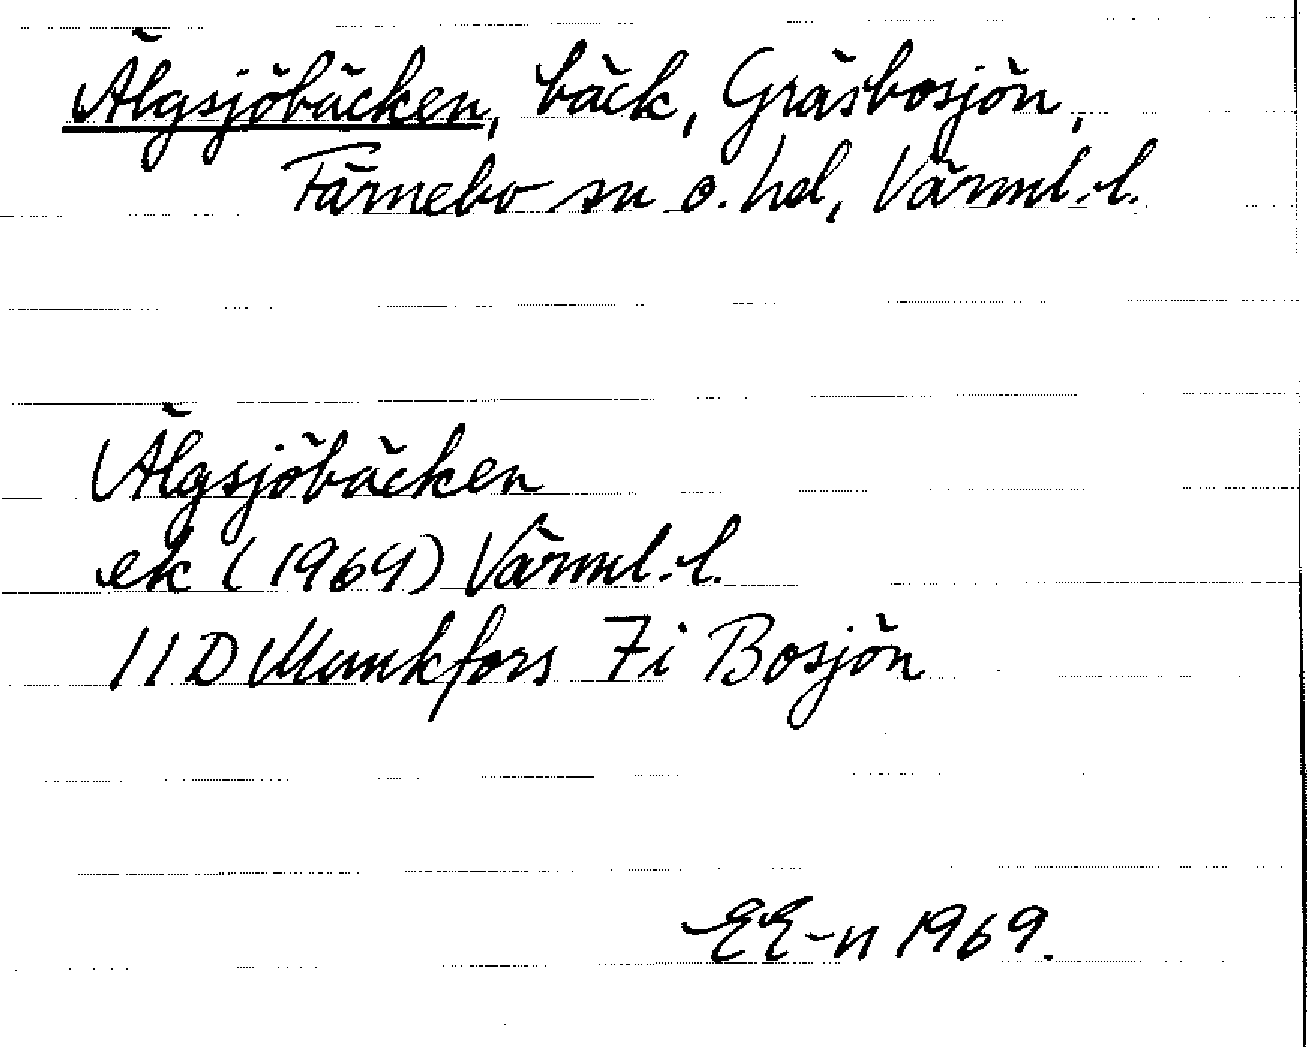 Älgsjöbäcken, bäck, Gräsbosjön,
Färnebo sn o. hd, Värml. l.
Älgsjöbäcken
ek (1969) Värml. l.
11D Munkfors 7i Bosjön
EE-n 1969.